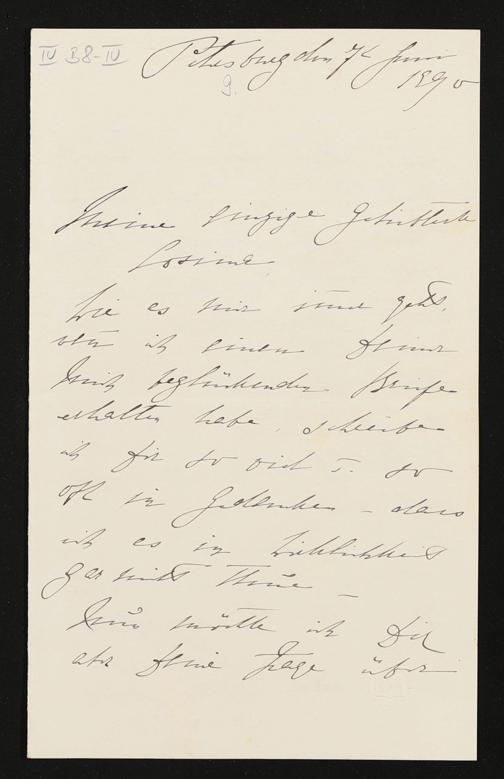 IV B8-IV
Petersburg den 7t Juni
9.
1890
Meine einzige Geliebteste
Cosima
Wie es mir immer geht,
wen ich einen Deiner
mich beglückenden Briefe
erhalten habe, schreibe
ich Dir so viel u. so
oft in Gedanken – dass
ich es in Wirklichkeit
gar nicht thue –
Nun möchte ich Dir
aber Deine Frage über